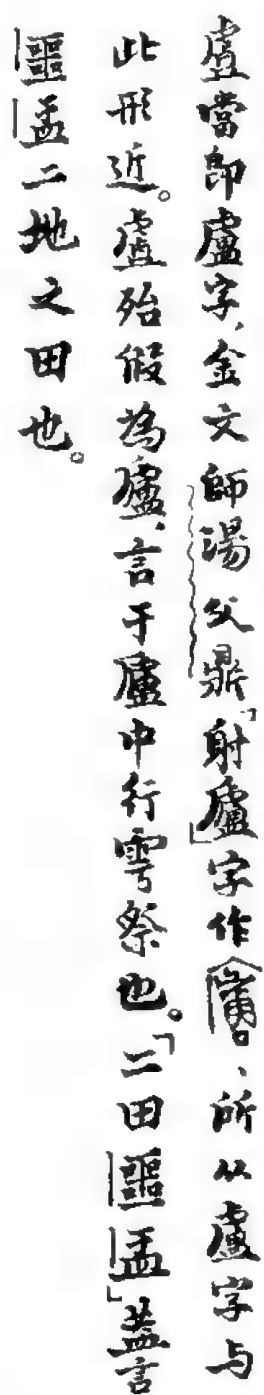 盧當即盧字,金文師湯父鼎「射廬」字作、所从盧字与
此形近。盧殆假為廬,言于廬中行雩祭也。「二田噩盂」蓋言
噩盂二地之田也。